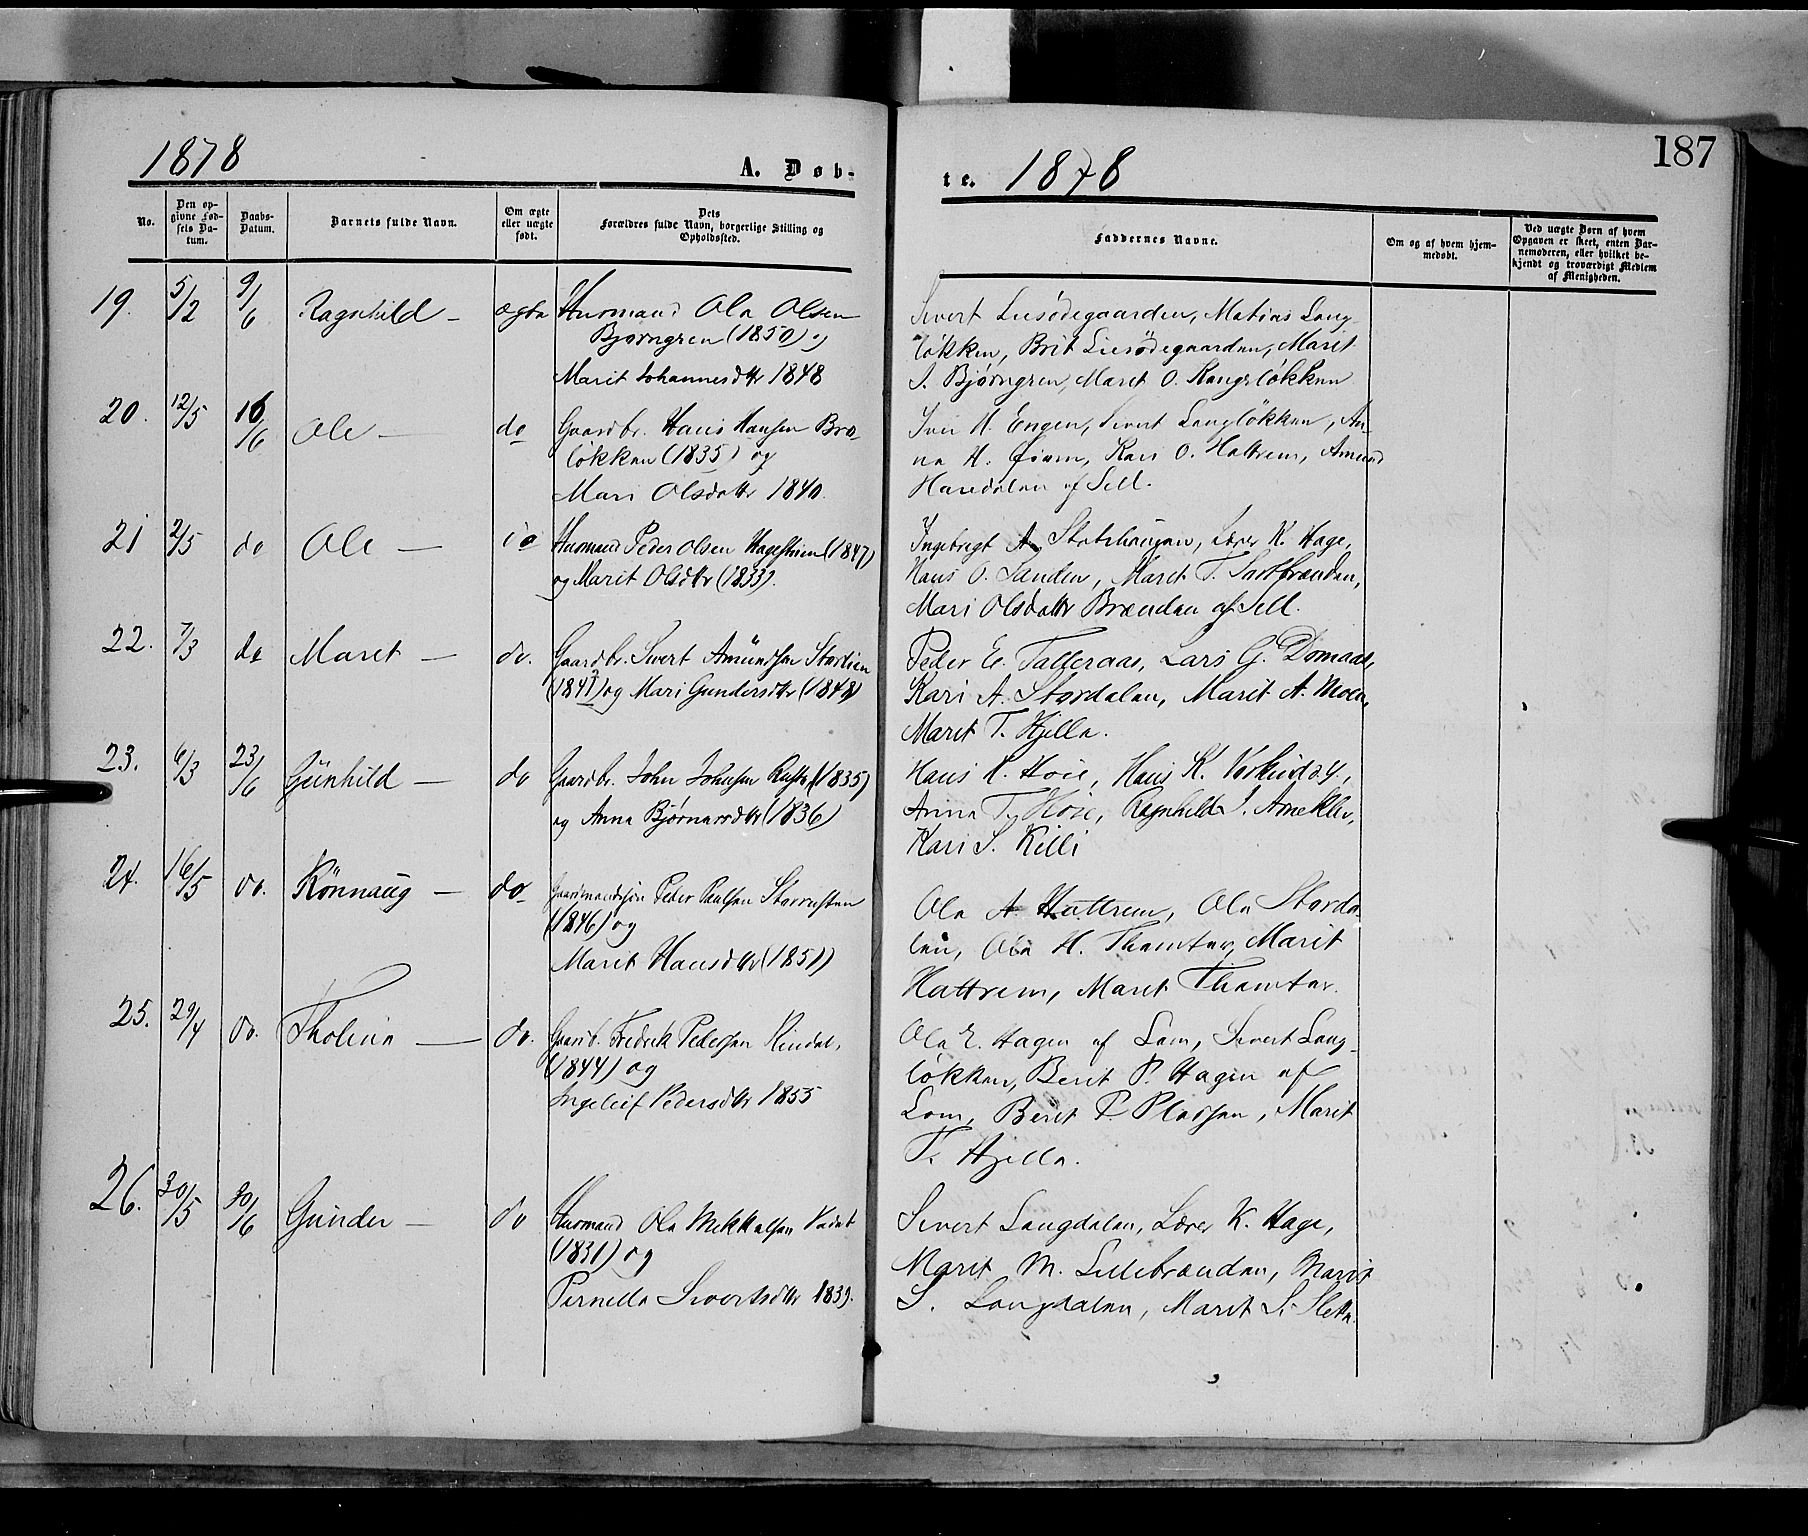 1878
A. Døb-
te. 1878
187
No.
Den op-
givne Fød-
sels Da-
tum.
Daabs-
Datum.
Barnets fulde Navn.
Om ægte
eller uægte
født.
Dets
Forældres fulde Navn, borgerlige Stilling og
Opholdssted.
Faddernes Navne.
Om og af hvem hjem-
medøbt.
Ved uægte Børn af hvem
Opgaven er skeet, enten Bar-
nemoderen, eller hvilket be-
kjendt og troværdigt Medlem
af Menigheden.
19. 5/2 9/6 Ragnhild – ægte Husmand Ola Olsen
Bjørngren (1850) og
Marit Johannesdtr 1848
Sivert Liesødegaarden, Matias Lang-
løkken, Brit Liesødegaarden, Marit
J. Bjørngren, Maret O. Kongsløkken
20. 12/5 16/6 Ole – do Gaardbr. Hans Hansen Bra-
løkken (1835) og
Mari Olsdattr 1840.
Iver H. Engen, Sivert Langløkken, An-
na H. Kari O. Hattrem, Amund
af Sell.
21 2/5 do Ole – Husmand Peder Olsen (1847)
og Marit Olsdtr (1833).
Ingebregt A. Lærer K. Hage,
Hans O. Sanden, Maret T.
Mari Olsdattr Brænden af Sell.
22. 7/3 do Maret – do. Gaardbr. Sivert Amundsen Storlien
og Mari Gundersdtr (1848)
Peder E. Talleraas, Lars G. Domaas,
Kari A. Stordalen, Marit A. Moen,
Maret T. Hjelle.
23. 6/3 23/6 Gunhild – do Gaardbr. John Johnsen (1835)
og Anna Bjørnersdtr (1836)
Hans H. Hoie, Hans K.
Anna T. Hoie, Ragnhild J.
Kari S. Killi
24. 16/5 do. Rønnaug – do Gaardmandssøn Peder Paulsen Storrusten
(1846) og
Maret Hansdtr (1851)
Ola A. Hattrem, Ola Storda-
len, Ola H. Thamtør, Marit
Hattrem, Maret Thamtør.
25. 29/4 do. Tholina – do. Gaardb. Fredrik Pedersen Kindal,
(1844) og
Ingeleif Pedersdtr 1855
Ola E. Hagen af Lom, Sivert Lang-
løkken, Berit P. Hagen af
Lom, Beret P. Pladsen, Marit
T. Hjelle.
26. 30/5 30/6 Gunder – do Husmand Ola Mikkelsen
(1831) og
Pernille Sivertsdtr 1839.
Sivert Langdalen, Lærer K. Hage,
Marit M. Lillebrænden, Marit
S. Langdalen, Marit S. Sletta.